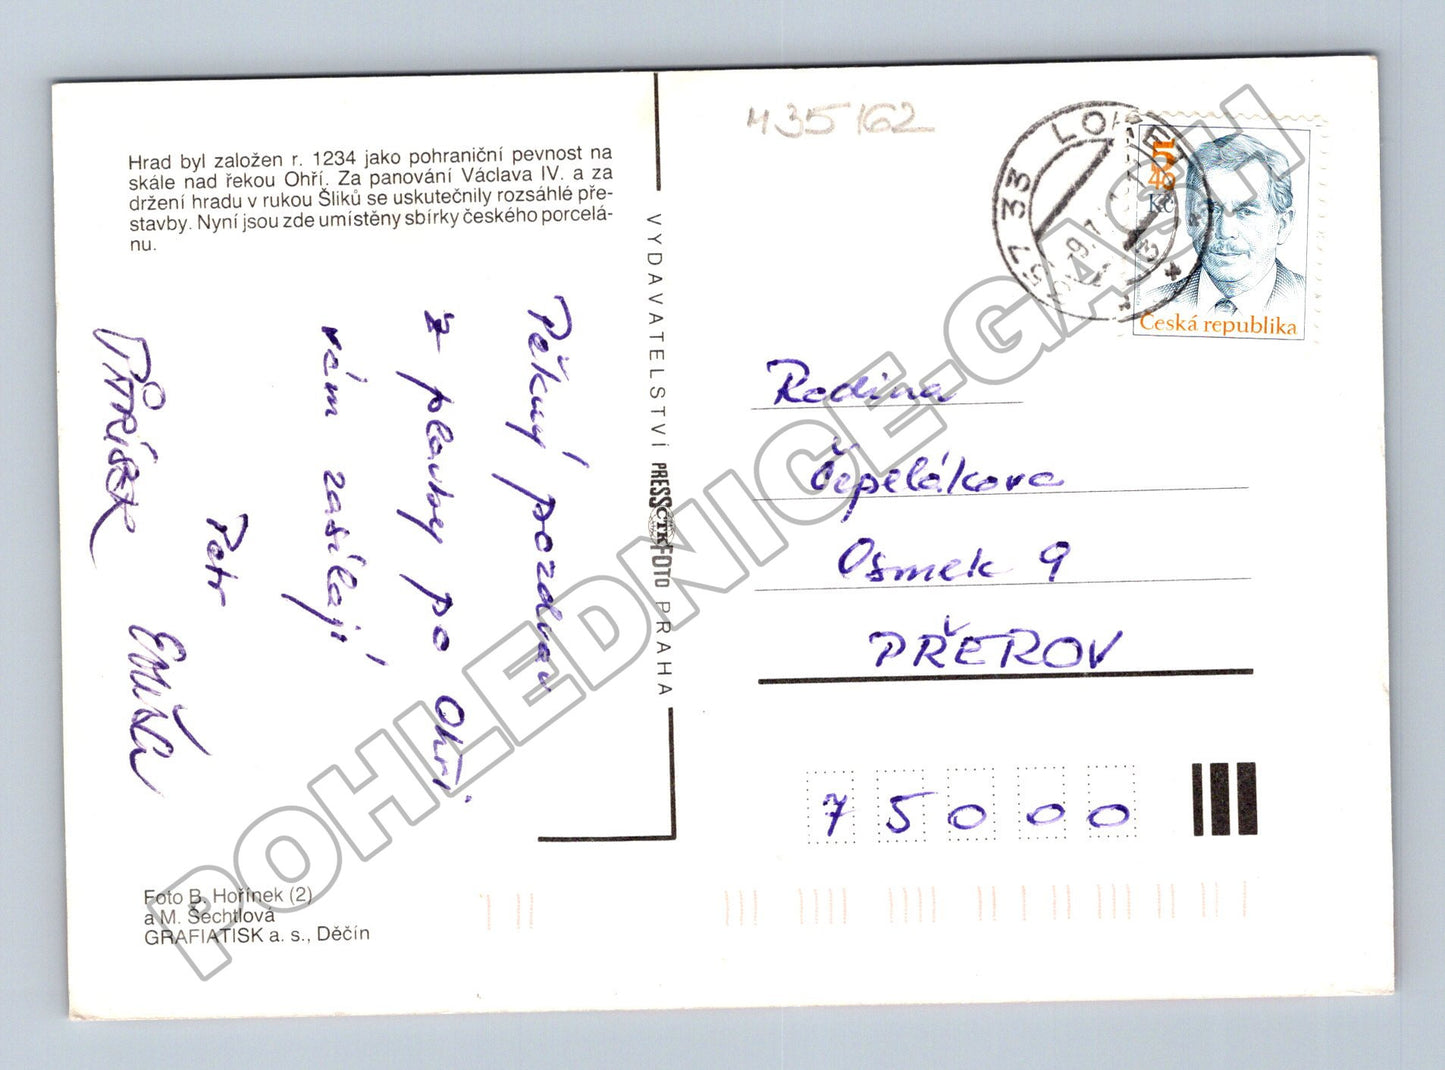 Hrad byl založen r. 1234 jako pohraniční pevnost na
skále nad řekou Ohří. Za panování Václava IV. a za
držení hradu v rukou Šliků se uskutečnily rozsáhlé pře-
stavby. Nyní jsou zde umístěny sbírky českého porcelá-
nu.
Pěkný pozdrav
z plavby po Ohři
vám zasílají
Petr
Emuša
Foto B. Hořínek (2)
a M. Šechtlová
GRAFIATISK a. s., Děčín
VYDAVATELSTVÍ PRESSFOTO PRAHA
ČTK
M35162
357 33 LOKET 1
5
40
Kč
Česká republika
Rodina
Čepelákova
Osmek 9
PŘEROV
75000
POHLEDNICE-GASH